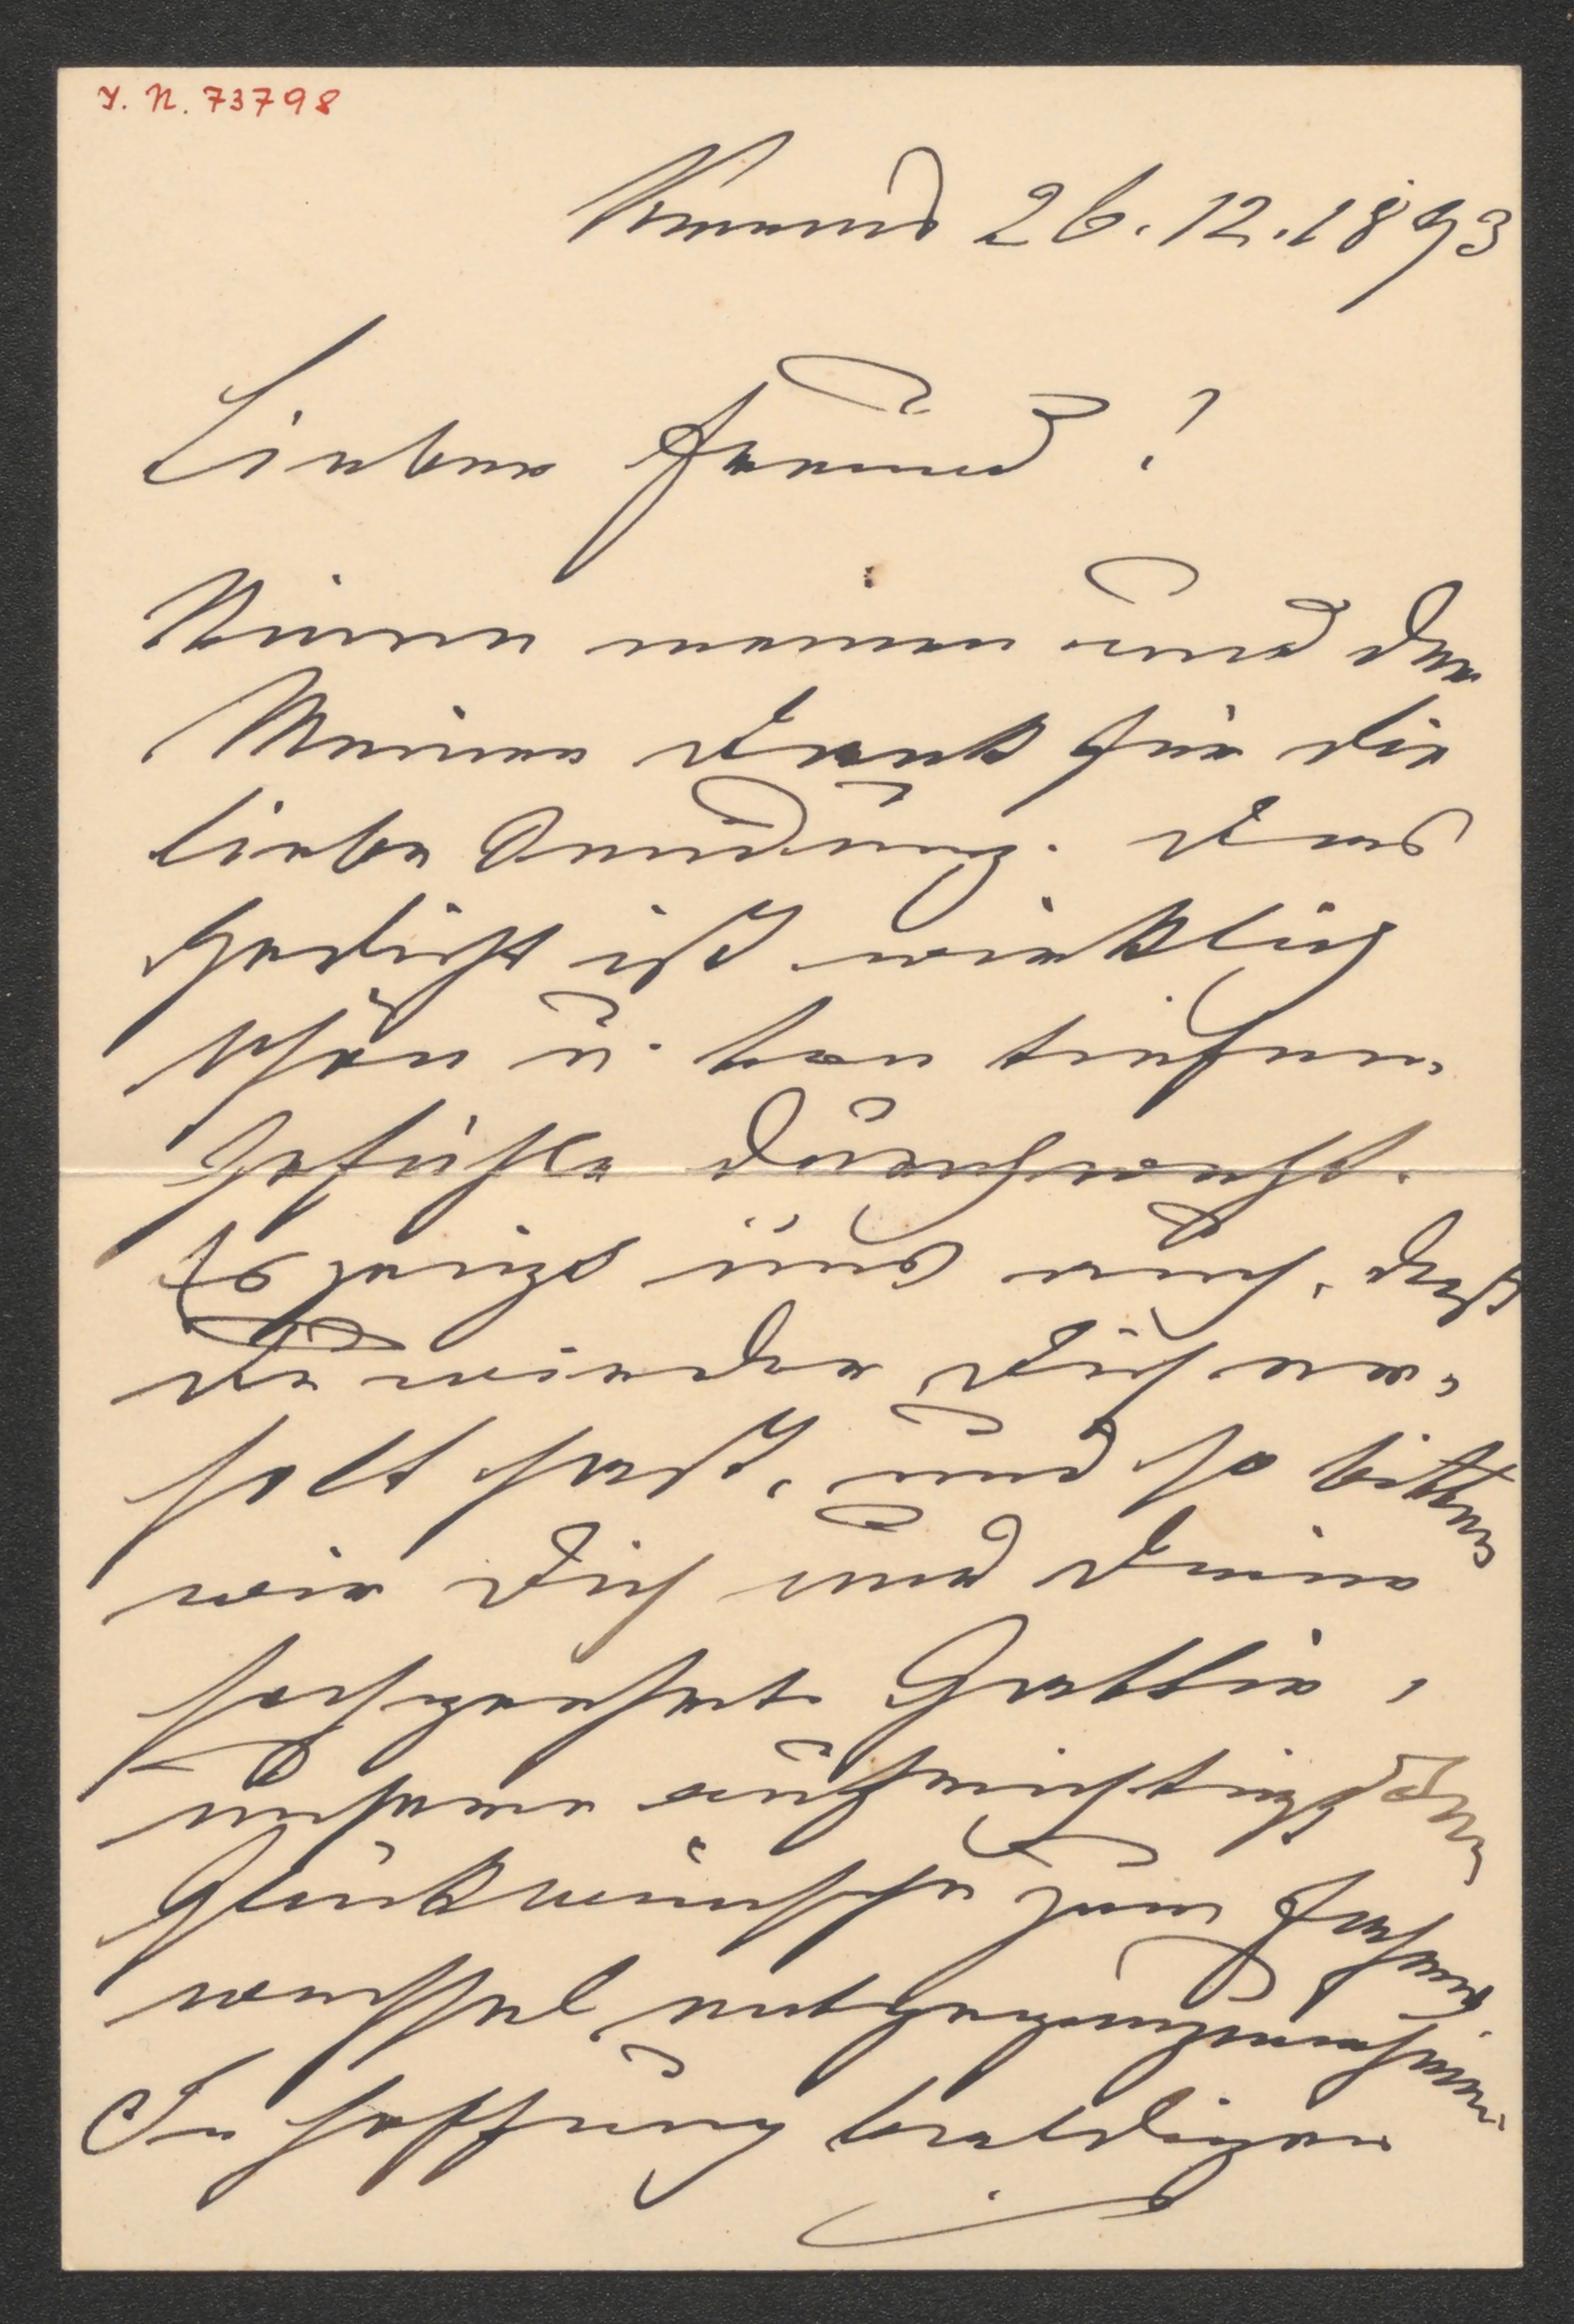 I. N. 73798
26.12.1893
Lieber Freund!
Nimm meinen und der
Meinen Dank für die
liebe Sendung. Das
Gedicht ist wirklich
schön u. von tiefem
Gefühle durchweht.
Es zeigt uns auch, daß
Du wieder Dich er-
holt hast, und so bitten
wir Dich und Deine
hochgeehrte Gattin,
unsere aufrichtigsten
Glückwünsche zum Jahres-
wechsel entgegenzunehmen.
In Hoffnung baldigen